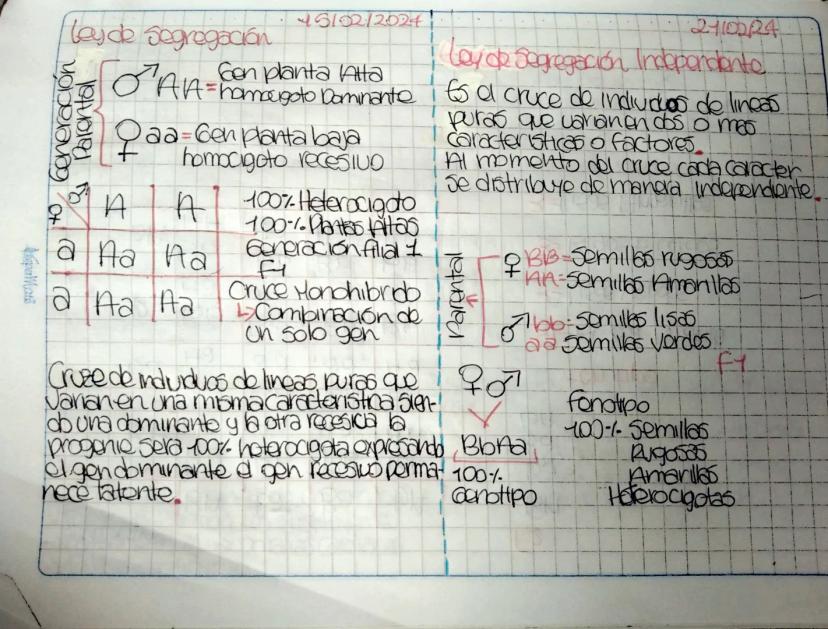 15/02/2024
Ley de Segregación
Generación
Parental
♂ AA = Gen planta Alta
homocigoto Dominante
♀ aa = Gen planta baja
homocigoto recesivo
♀ ♂ A A
a Aa Aa
a Aa Aa
100% Heterocigoto
100% Plantas Altas
Generación Filial 1
F1
Cruce Monohibrido
↳ Combinación de
un solo gen
Cruze de individuos de lineas puras que
varian en una misma caracteristica sien-
do una dominante y la otra recesiva la
progenie sera 100% heterocigota expresando
el gen dominante el gen recesivo perma-
nece latente.
21/02/24
Ley de Segregación Independiente
Es el cruce de individuos de lineas
puras que varian en dos o mas
caracteristicas o factores.
Al momento del cruce cada caracter
se distribuye de manera independiente.
Parental
♀ BB = Semillas rugosas
AA = Semillas Amarillas
♂ bb = Semillas lisas
aa Semillas verdes
F1
♀ ♂
BbAa
100%
Genotipo
Fenotipo
100% Semillas
Rugosas
Amarillas
Heterocigotas